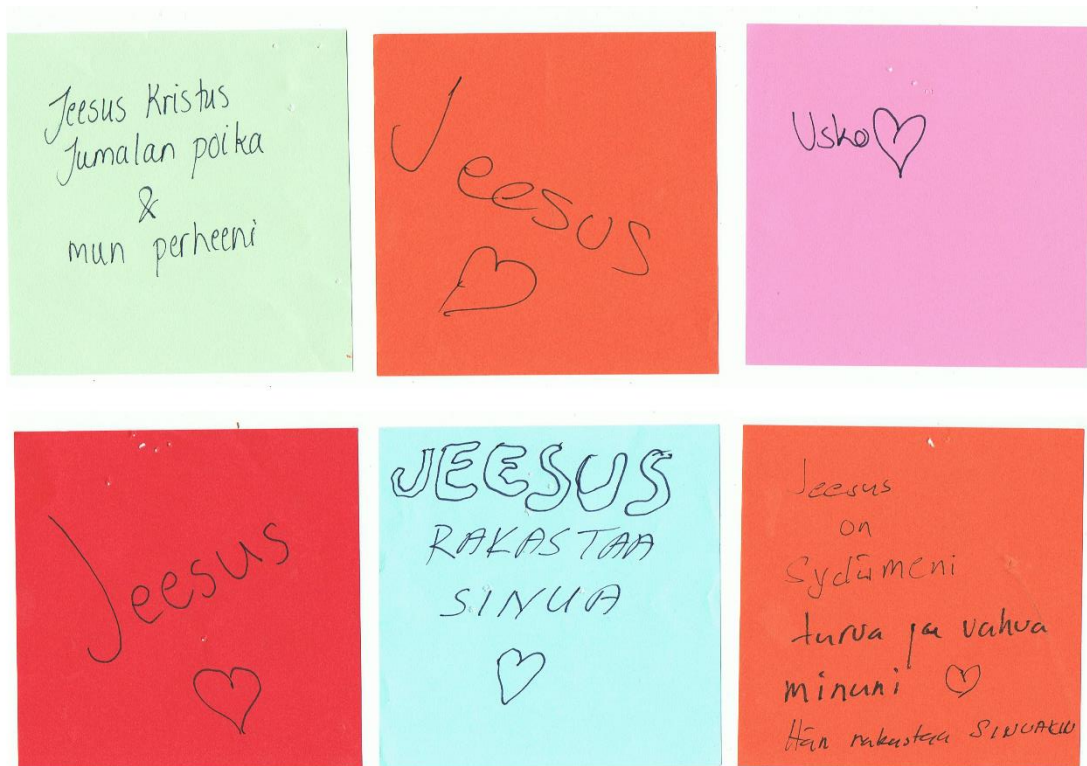 Jeesus Kristus
Jumalan poika
&
mun perheeni
Jeesus
Usko
Jeesus
JEESUS
RAKASTAA
SINUA
Jeesus
on
Sydämeni
turva ja vahva
minuni
Hän rakastaa SINUAKIN